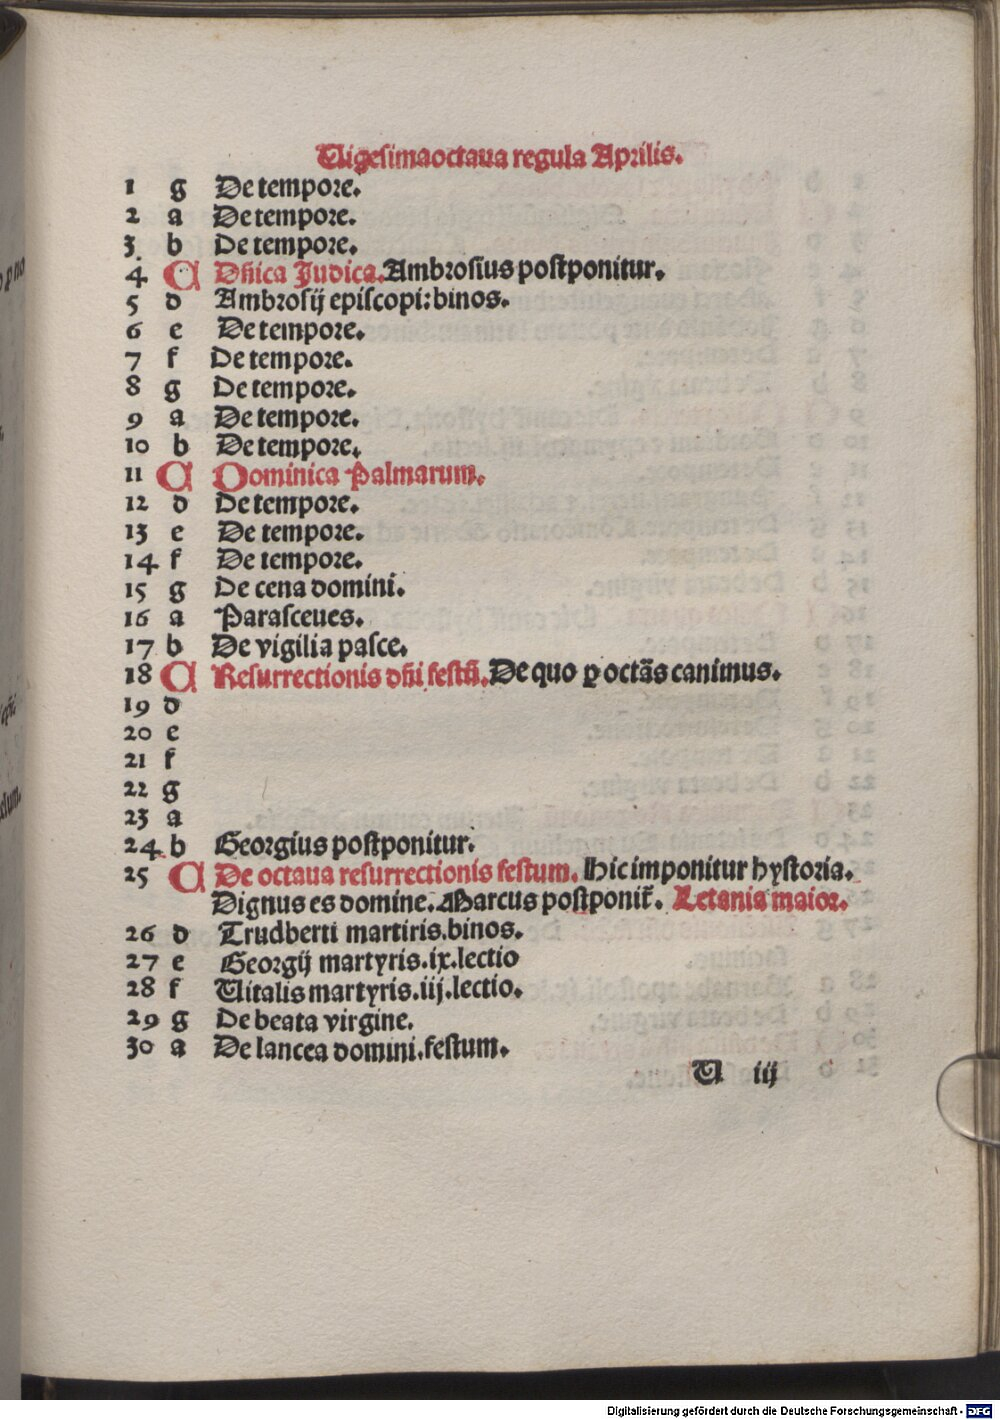 Uigesimaoctaua regula Aprilis.
1 g De tempore.
2 a De tempore.
3 b De tempore.
4 C Dñica Judica. Ambrosius postponitur.
5 d Ambrosij episcopi: binos.
6 e De tempore.
7 f De tempore.
8 g De tempore.
9 a De tempore.
10 b De tempore.
11 C Dominica Palmarum.
12 d De tempore.
13 e De tempore.
14 f De tempore.
15 g De cena domini.
16 a Parasceues.
17 b De vigilia pasce.
18 C Resurrectionis dñi festũ. De quo ꝑ octãs canimus.
19 d
20 e
21 f
22 g
23 a
24 b Georgius postponitur.
25 C De octaua resurrectionis festum. Hic imponitur hystoria.
Dignus es domine. Marcus postponit᷑. Letania maior.
26 d Trudberti martiris. binos.
27 e Georgij martyris. ix. lectio
28 f Uitalis martyris. iij. lectio.
29 g De beata virgine.
30 a De lancea domini. festum.
U iij
Digitalisierung gefördert durch die Deutsche Forschungsgemeinschaft - DFG